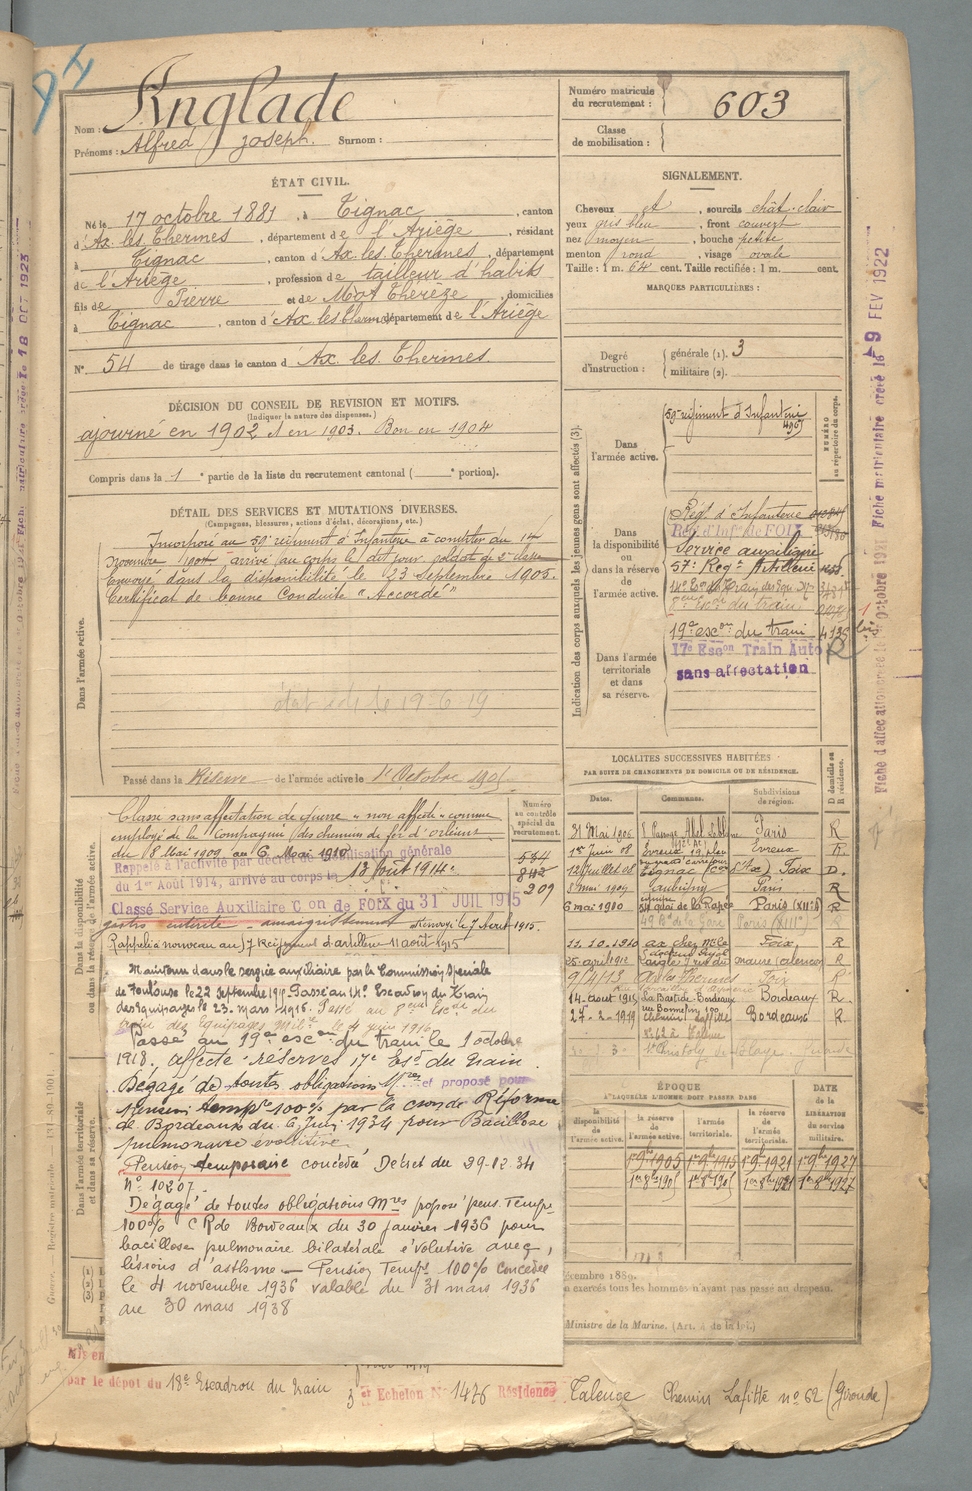 Nom : Anglade
Prénoms : Alfred Joseph. Surnom :
Numéro matricule du recrutement : 603
Classe de mobilisation :
ÉTAT CIVIL.
Né le 17 octobre 1881, à Tignac, canton
d'Ax les Thermes, département de l'Ariège, résidant
à Tignac, canton d'Ax les Thermes, département
de l'Ariège, profession de tailleur d'habits
fils de Pierre et de Mòt Thérèze, domiciliés
à Tignac, canton d'Ax les Thermes département de l'Ariège
N° 54 de tirage dans le canton d'Ax les Thermes.
SIGNALEMENT.
Cheveux et, sourcils chât-clair
yeux gris bleu, front couvert
nez moyen, bouche petite
menton rond, visage ovale
Taille : 1 m. 64 cent. Taille rectifiée : 1 m. cent.
MARQUES PARTICULIÈRES :
Degré d'instruction : générale (1). 3
militaire (2).
DÉCISION DU CONSEIL DE REVISION ET MOTIFS.
(Indiquer la nature des dispenses.)
ajourné en 1902 et en 1903. Bon en 1904
Compris dans la 1e partie de la liste du recrutement cantonal ( e portion).
DÉTAIL DES SERVICES ET MUTATIONS DIVERSES.
(Campagnes, blessures, actions d'éclat, décorations, etc.)
Dans l'armée active.
Incorporé au 59e régiment d'Infanterie à compter du 14
novembre 1904 arrivé au corps le dit jour soldat de 2e classe
Envoyé dans la disponibilité le 23 Septembre 1905.
Certificat de bonne Conduite "Accordé"
Passé dans la Réserve de l'armée active le 1er Octobre 1905
Indication des corps auxquels les jeunes gens sont affectés (3).
NUMÉRO au répertoire du corps.
Dans l'armée active.
59e régiment d'Infanterie
Dans la disponibilité ou dans la réserve de l'armée active.
Régt d'Infanterie
Rég d'Inf. de FOIX
Service auxiliaire
57e Regt Artillerie
8eme Esc. du train
19e escon du train 4135 bis
17e Escon Train Auto
sans affectation
Dans l'armée territoriale et dans sa réserve.
LOCALITÉS SUCCESSIVES HABITÉES
PAR SUITE DE CHANGEMENTS DE DOMICILE OU DE RÉSIDENCE.
Dates. Communes. Subdivisions de région. D domicile ou R résidence.
31 Mai 1906 Paris R
1er Juin 08 Evreux Evreux R.
12 juillet 08 Tignac Foix D.
8 mai 1909 Paris R
6 mai 1910 quai de la Rapée Paris (XIIe) R
49 Bd de la Gare Paris (XIIIe)
11.10.1910 Ax Foix R
25 avril 1912 R
9/4/13 Ax les Thermes Foix R
14 aout 1915 La Bastide-Bordeaux Bordeaux R.
27-2-1919 Bordeaux R.
Dans la disponibilité ou dans l'armée active.
Numéro au contrôle spécial du recrutement.
534
842
209
Classé sans affectation de guerre "non affecté" comme
employé de la Compagnie des chemins de fer d'Orléans
du 8 Mai 1909 au 6 Mai 1910
Rappelé à l'activité par décret de mobilisation générale
du 1er Août 1914, arrivé au corps le 13 Août 1914.
Classé Service Auxiliaire Con de FOIX du 31 JUIL 1915
gastro entérite - amaigrissement Renvoyé le 7 Août 1915.
Rappelé à nouveau au 57 Régiment d'artillerie 11 août 1915
Maintenu dans le service auxiliaire par la Commission Spéciale
de Toulouse le 22 septembre 1915. Passé au 14e Escadron du Train
des Equipages le 23 mars 1916. Passé au 8eme Escon du
train des Equipages Milre le 4 juin 1916
Passé au 19e escon du train le 1 octobre
1918. affecté réserves 17e Esc du train.
Dégagé de toutes obligations Mres et proposé pour
Pension tempre 100% par la cion de Réforme
de Bordeaux du 6 juin 1934 pour Bacillose
pulmonaire évolutive
Pension temporaire concédée Décret du 29-12-34
N° 10207.
Dégagé de toutes obligations Mres proposé pens. Tempre
100% CR de Bordeaux du 30 janvier 1936 pour
bacillose pulmonaire bilatérale évolutive avec
lésions d'asthme - Pension Tempre 100% concédée
le 4 novembre 1936 valable du 31 mars 1936
au 30 mars 1938
Dans l'armée territoriale et dans sa réserve.
ÉPOQUE
A LAQUELLE L'HOMME DOIT PASSER DANS
DATE de la LIBÉRATION du service militaire.
la disponibilité de l'armée active. la réserve de l'armée active. l'armée territoriale. la réserve de l'armée territoriale.
1er 9bre 1905 1er 9bre 1915 1er 9bre 1921 1er 9bre 1927
1er 8bre 1905 1er 8bre 1915 1er 8bre 1921 1er 8bre 1927
décembre 1889.
exercés tous les hommes n'ayant pas passé au drapeau.
Ministre de la Marine. (Art. 4 de la loi.)
par le dépôt du 18e Escadron du train 3 er Echelon N° 1476 Résidence Talence Chemin Lafitte no 62 (Gironde)
Fiche d'affectation créée le Octobre 1921 Fiche matriculaire créée le 9 FEV 1922